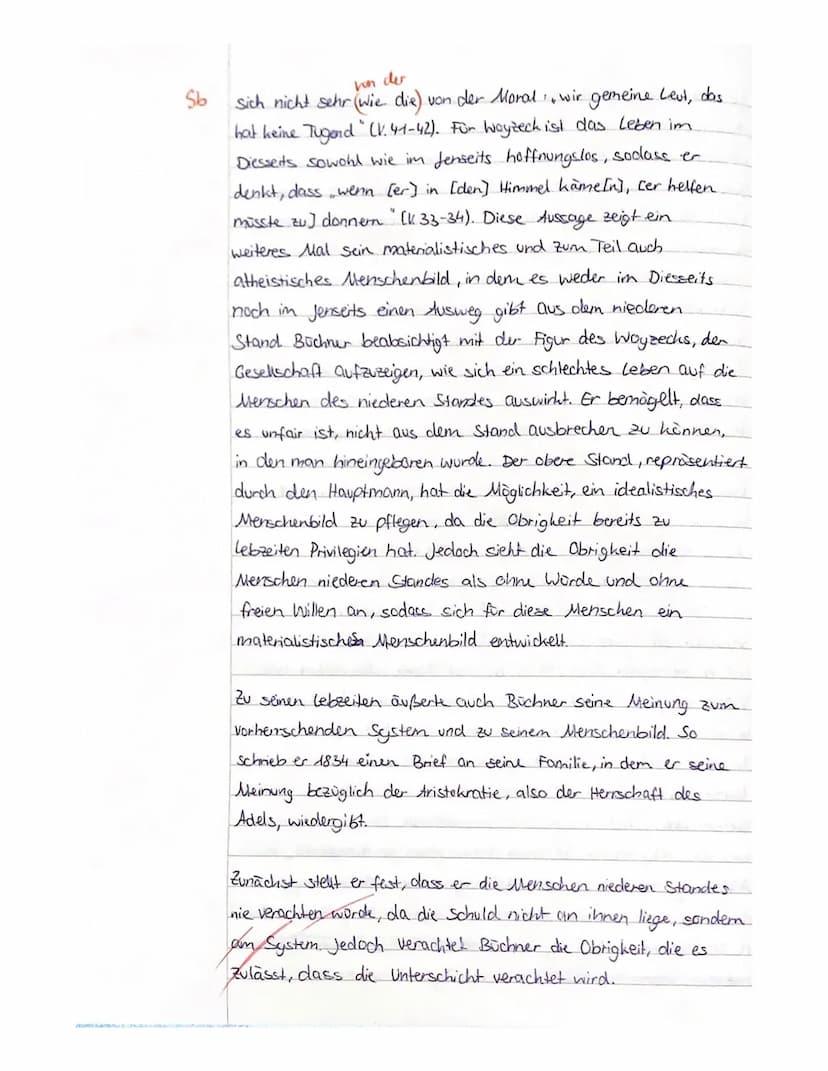 von der
Sb sich nicht sehr (wie die) von der Moral: „wir gemeine Leut, das
hat keine Tugend" (V. 41-42). Für Woyzeck ist das Leben im
Diesseits sowohl wie im Jenseits hoffnungslos, sodass er
denkt, dass „wenn [er] in [den] Himmel käme[n], [er helfen
müsste zu] donnern" (V. 33-34). Diese Aussage zeigt ein
weiteres Mal sein materialistisches und zum Teil auch
atheistisches Menschenbild, in dem es weder im Diesseits
noch im Jenseits einen Ausweg gibt aus dem niederen
Stand Büchner beabsichtigt mit der Figur des Woyzecks, der
Gesellschaft aufzuzeigen, wie sich ein schlechtes Leben auf die
Menschen des niederen Standes auswirkt. Er bemägelt, dass
es unfair ist, nicht aus dem Stand ausbrechen zu können,
in den man hineingeboren wurde. Der obere Stand, repräsentiert
durch den Hauptmann, hat die Möglichkeit, ein idealistisches
Menschenbild zu pflegen, da die Obrigkeit bereits zu
Lebzeiten Privilegien hat. Jedoch sieht die Obrigkeit die
Menschen niederen Standes als ohne Würde und ohne
freien Willen an, sodass sich für diese Menschen ein
materialistisches Menschenbild entwickelt.
Zu seinen Lebzeiten äußerte auch Büchner seine Meinung zum
vorherrschenden System und zu seinem Menschenbild. So
schrieb er 1834 einen Brief an seine Familie, in dem er seine
Meinung bezüglich der Aristokratie, also der Herrschaft des
Adels, wiedergibt.
Zunächst stellt er fest, dass er die Menschen niederen Standes
nie verachten würde, da die Schuld nicht an ihnen liege, sondern
am System. Jedoch verachtet Büchner die Obrigkeit, die es
zulässt, dass die Unterschicht verachtet wird.